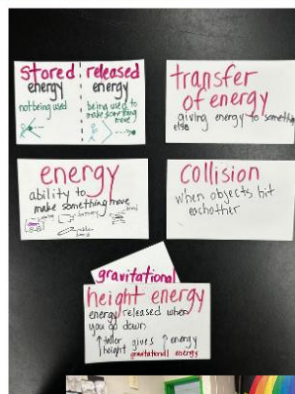 stored
energy
not being used
released
energy
being used to
make something
move
transfer
of energy
giving energy to something
else
energy
ability to
make something move
collision
when objects hit
eachother
gravitational
height energy
energy released when
you go down
↑ taller gives ↑ energy
height gravitational energy